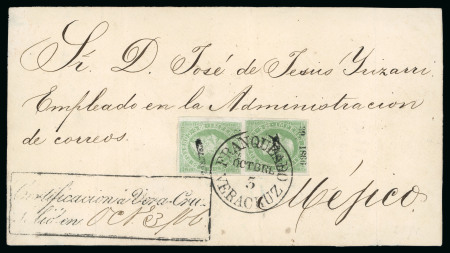 Sr. D. José de Jesus Yrizarri.
Empleado en la Administracion
de correos.
FRANQUEADO
OCTBRE
3
VERACRUZ
Méjico.
Certificacion á Vera-Cruz
OCT 3/66